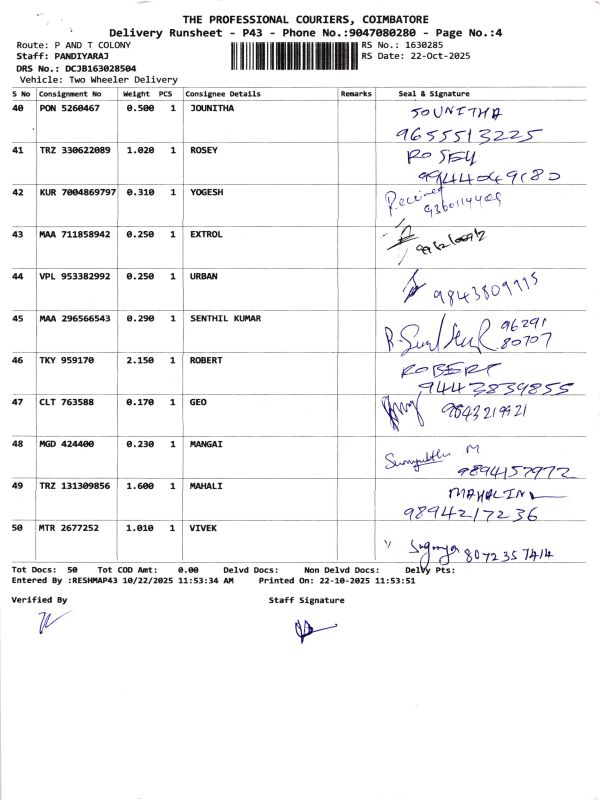 THE PROFESSIONAL COURIERS, COIMBATORE
Delivery Runsheet - P43 - Phone No.:9047080280 - Page No.:4
Route: P AND T COLONY RS No.: 1630285
Staff: PANDIYARAJ RS Date: 22-Oct-2025
DRS No.: DCJB163028504
Vehicle: Two Wheeler Delivery
S No Consignment No Weight PCS Consignee Details Remarks Seal & Signature
40 PON 5260467 0.500 1 JOUNITHA JOUNITHA
9655513225
41 TRZ 330622089 1.020 1 ROSEY ROSEY
42 KUR 7004869797 0.310 1 YOGESH Received
43 MAA 711858942 0.250 1 EXTROL
44 VPL 953382992 0.250 1 URBAN
9843809915
45 MAA 296566543 0.290 1 SENTHIL KUMAR 96291
80707
46 TKY 959170 2.150 1 ROBERT ROBERT
9443839855
47 CLT 763588 0.170 1 GEO 9843219921
48 MGD 424400 0.230 1 MANGAI M
9894157972
49 TRZ 131309856 1.600 1 MAHALI MAHALI
9894217236
50 MTR 2677252 1.010 1 VIVEK
8072357414
Tot Docs: 50 Tot COD Amt: 0.00 Delvd Docs: Non Delvd Docs: Delvy Pts:
Entered By :RESHMAP43 10/22/2025 11:53:34 AM Printed On: 22-10-2025 11:53:51
Verified By Staff Signature